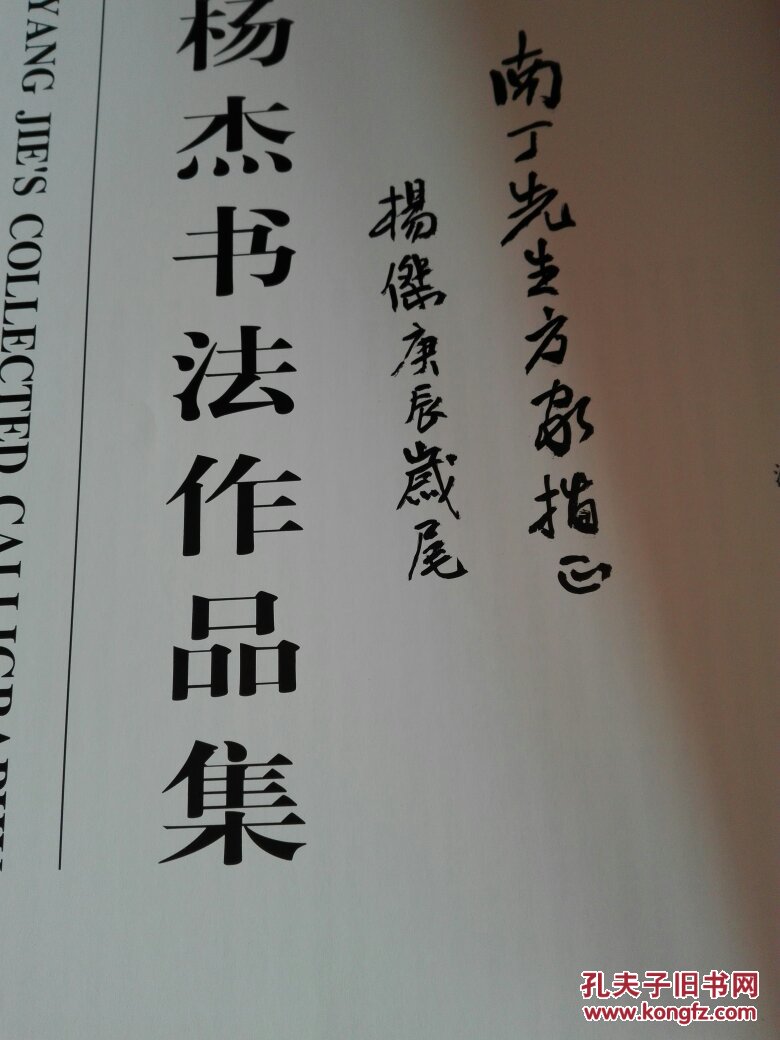 南丁先生方家指正
楊傑庚辰歲尾
杨杰书法作品集
YANG JIE'S COLLECTED CALLIGRAPHY
孔夫子旧书网
www.kongfz.com